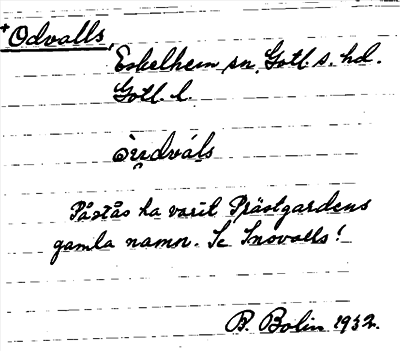 +Odvalls,
Eskelhem sn. Gotl. s. hd.
Gotl. l.
Påstås ha varit Prästgardens
gamla namn. Se Snovalls!
B. Bolin 1932.